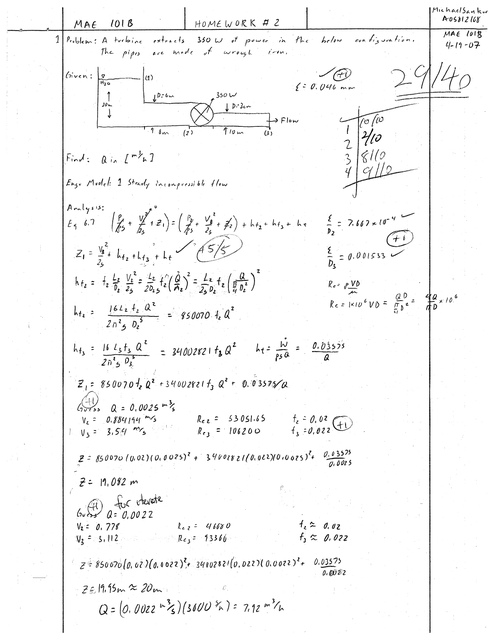 Michael Sankur
A05012168
MAE 101B
HOMEWORK # 2
MAE 101B
4-19-07
1 Problem: A turbine extracts 350 W of power in the below configuration.
The pipes are made of wrought iron.
29/40
Given:
(1)
H2O
20m
D=6cm
350 W
D=3cm
→ Flow
(2)
(3)
ε = 0.046 mm
+1
1 10/10
2 2/10
3 8/10
4 9/10
Find: Q in [m³/h]
Eng. Model: 1 Steady incompressible flow
Analysis:
Eq 6.7
Z1 = V3²/2g + hf2 + hf3 + ht ✓ +5/5
ε/D2 = 7.667×10⁻⁴ ✓
ε/D3 = 0.001533 ✓
+1
hf2 = f2 L2/D2 V2²/2g
Re = ρVD/μ
Re = 1×10⁶ VD
hf2 = 16 L2 f2 Q²/2π²g D2⁵ = 85070 f2 Q²
hf3 = 16 L3 f3 Q²/2π²g D3⁵ = 34002821 f3 Q² ht = Ẇ/ρgQ = 0.03575/Q
Z1 = 850070 f2 Q² + 34002821 f3 Q² + 0.03575/Q
+1
Guess Q = 0.0025 m³/s
V2 = 0.884194 m/s Re2 = 53051.65 f2 = 0.02
V3 = 3.54 m/s Re3 = 106200 f3 = 0.022 +1
Z = 850070(0.02)(0.0025)² + 34002821(0.022)(0.0025)² + 0.03575/0.0025
Z = 19.082 m
+1 for iterate
Guess Q = 0.0022
V2 = 0.778 Re2 = 46680 f2 ≈ 0.02
V3 = 3.112 Re3 = 93366 f3 ≈ 0.022
Z = 850070(0.02)(0.0022)² + 34002821(0.022)(0.0022)² + 0.03575/0.0022
Z = 19.95m ≈ 20m
Q = (0.0022 m³/s)(3600 s/h) = 7.92 m³/h